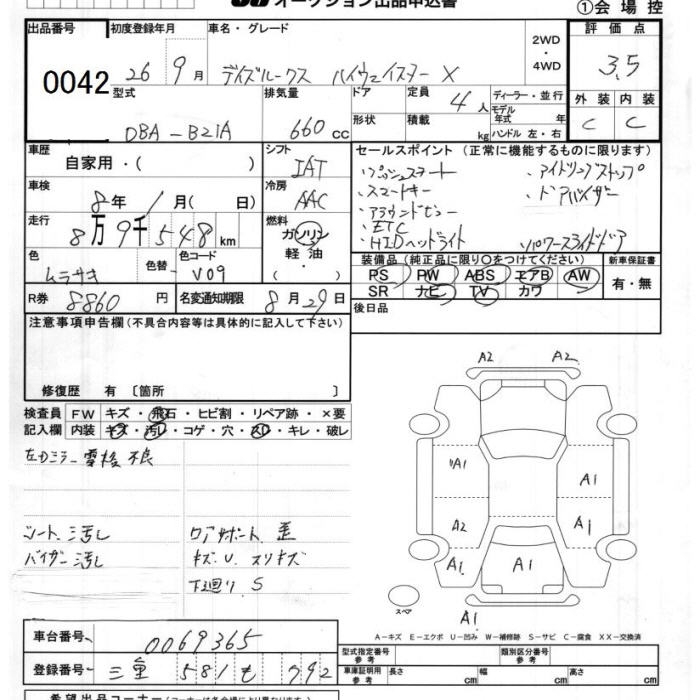 オークション出品申込書 ①会場控
出品番号 初度登録年月 車名・グレード 2WD ・ 4WD 評価点
0042 26 9月 デイズルークス ハイウェイスター X 3.5
型式 排気量 ドア 定員 4人 ディーラー・並行 外装 内装
DBA-B21A 660cc 形状 積載 kg モデル年式 年式 ハンドル 左・右 C C
車歴 シフト セールスポイント (正常に機能するものに限ります)
自家用・( ) IAT ・プッシュスタート ・アイドリングストップ
車検 冷房 ・スマートキー ・ドアバイザー
8年 1月( 日) AAC ・アラウンドビュー
走行 燃料 ・ETC
8万9千548km ガソリン ・HIDヘッドライト ・パワースライドドア
色 色替 色コード 軽油 装備品 (純正品に限り○をつけてください) 新車保証書
ムラサキ V09 ・( ) PS PW ABS エアB AW 有・無
R券 8860円 名変通知期限 8月29日 SR ナビ TV カワ
注意事項申告欄(不具合内容等は具体的に記入して下さい) 後日品
修復歴 有 〔箇所 〕
検査員 FW キズ・飛石・ヒビ割・リペア跡・×要
記入欄 内装 キズ・汚レ・コゲ・穴・スレ・キレ・破レ
左Dミラー 電格 不良
シート 汚し ロアサポート 歪
バイザー 汚し キズ.U.スリキズ
下廻り S
A2 A2
A1 A1
A2 A1
A1 A1 A1
スペア A1
A-キズ E-エクボ U-凹み W-補修跡 S-サビ C-腐食 XX-交換済
車台番号 0069365 型式指定番号 参考 類別区分番号 参考
登録番号 三重 581 も 792 車庫証明用 参考 長さ cm 幅 cm 高さ cm
希望出品コーナー